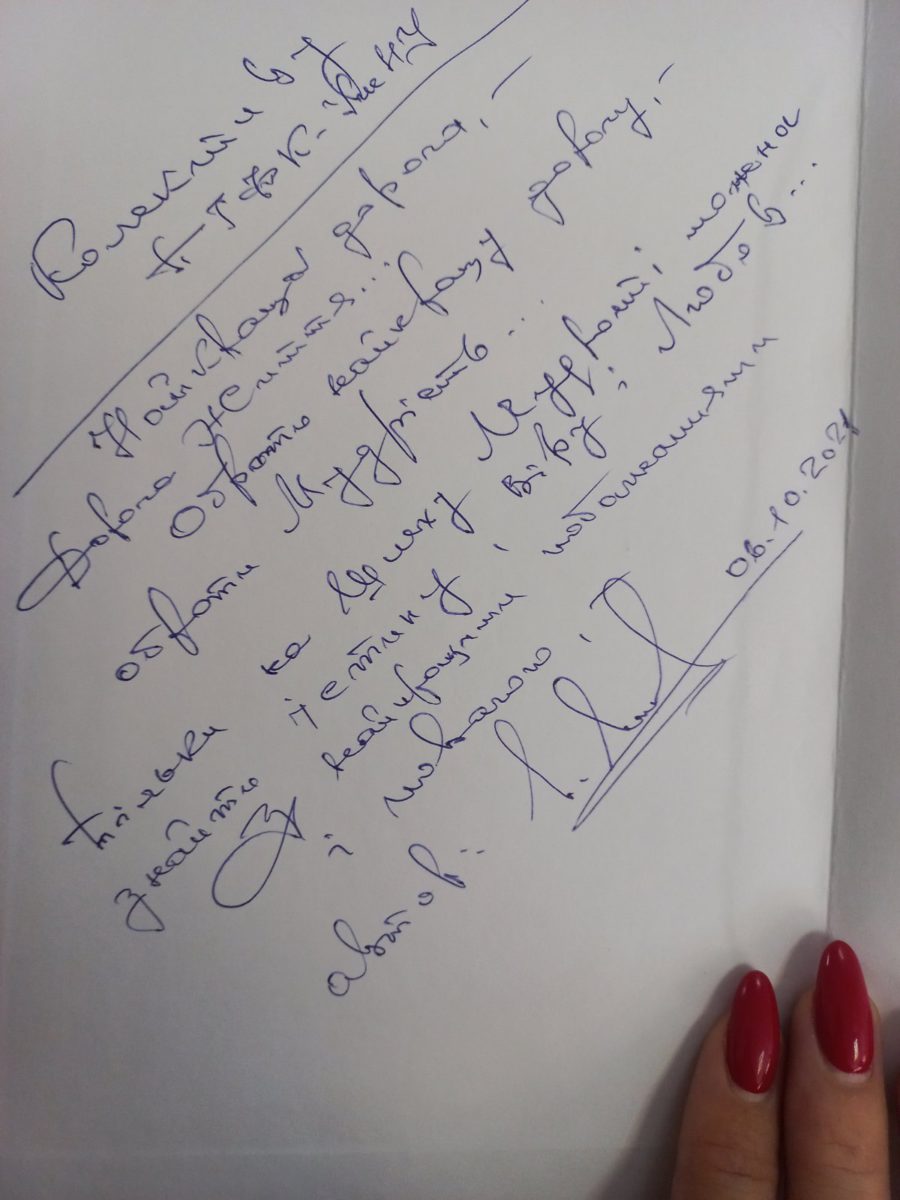 Колективу
КТФК-
Найкраща дорога, –
дорога життя...
Обрати найкращу дорогу, –
обрати Мудрість...
Тільки на Шляху Мудрості, можна
знайти істину, віру, Любов...
З найкращими побажаннями
і повагою,
автор:
06.10.2021